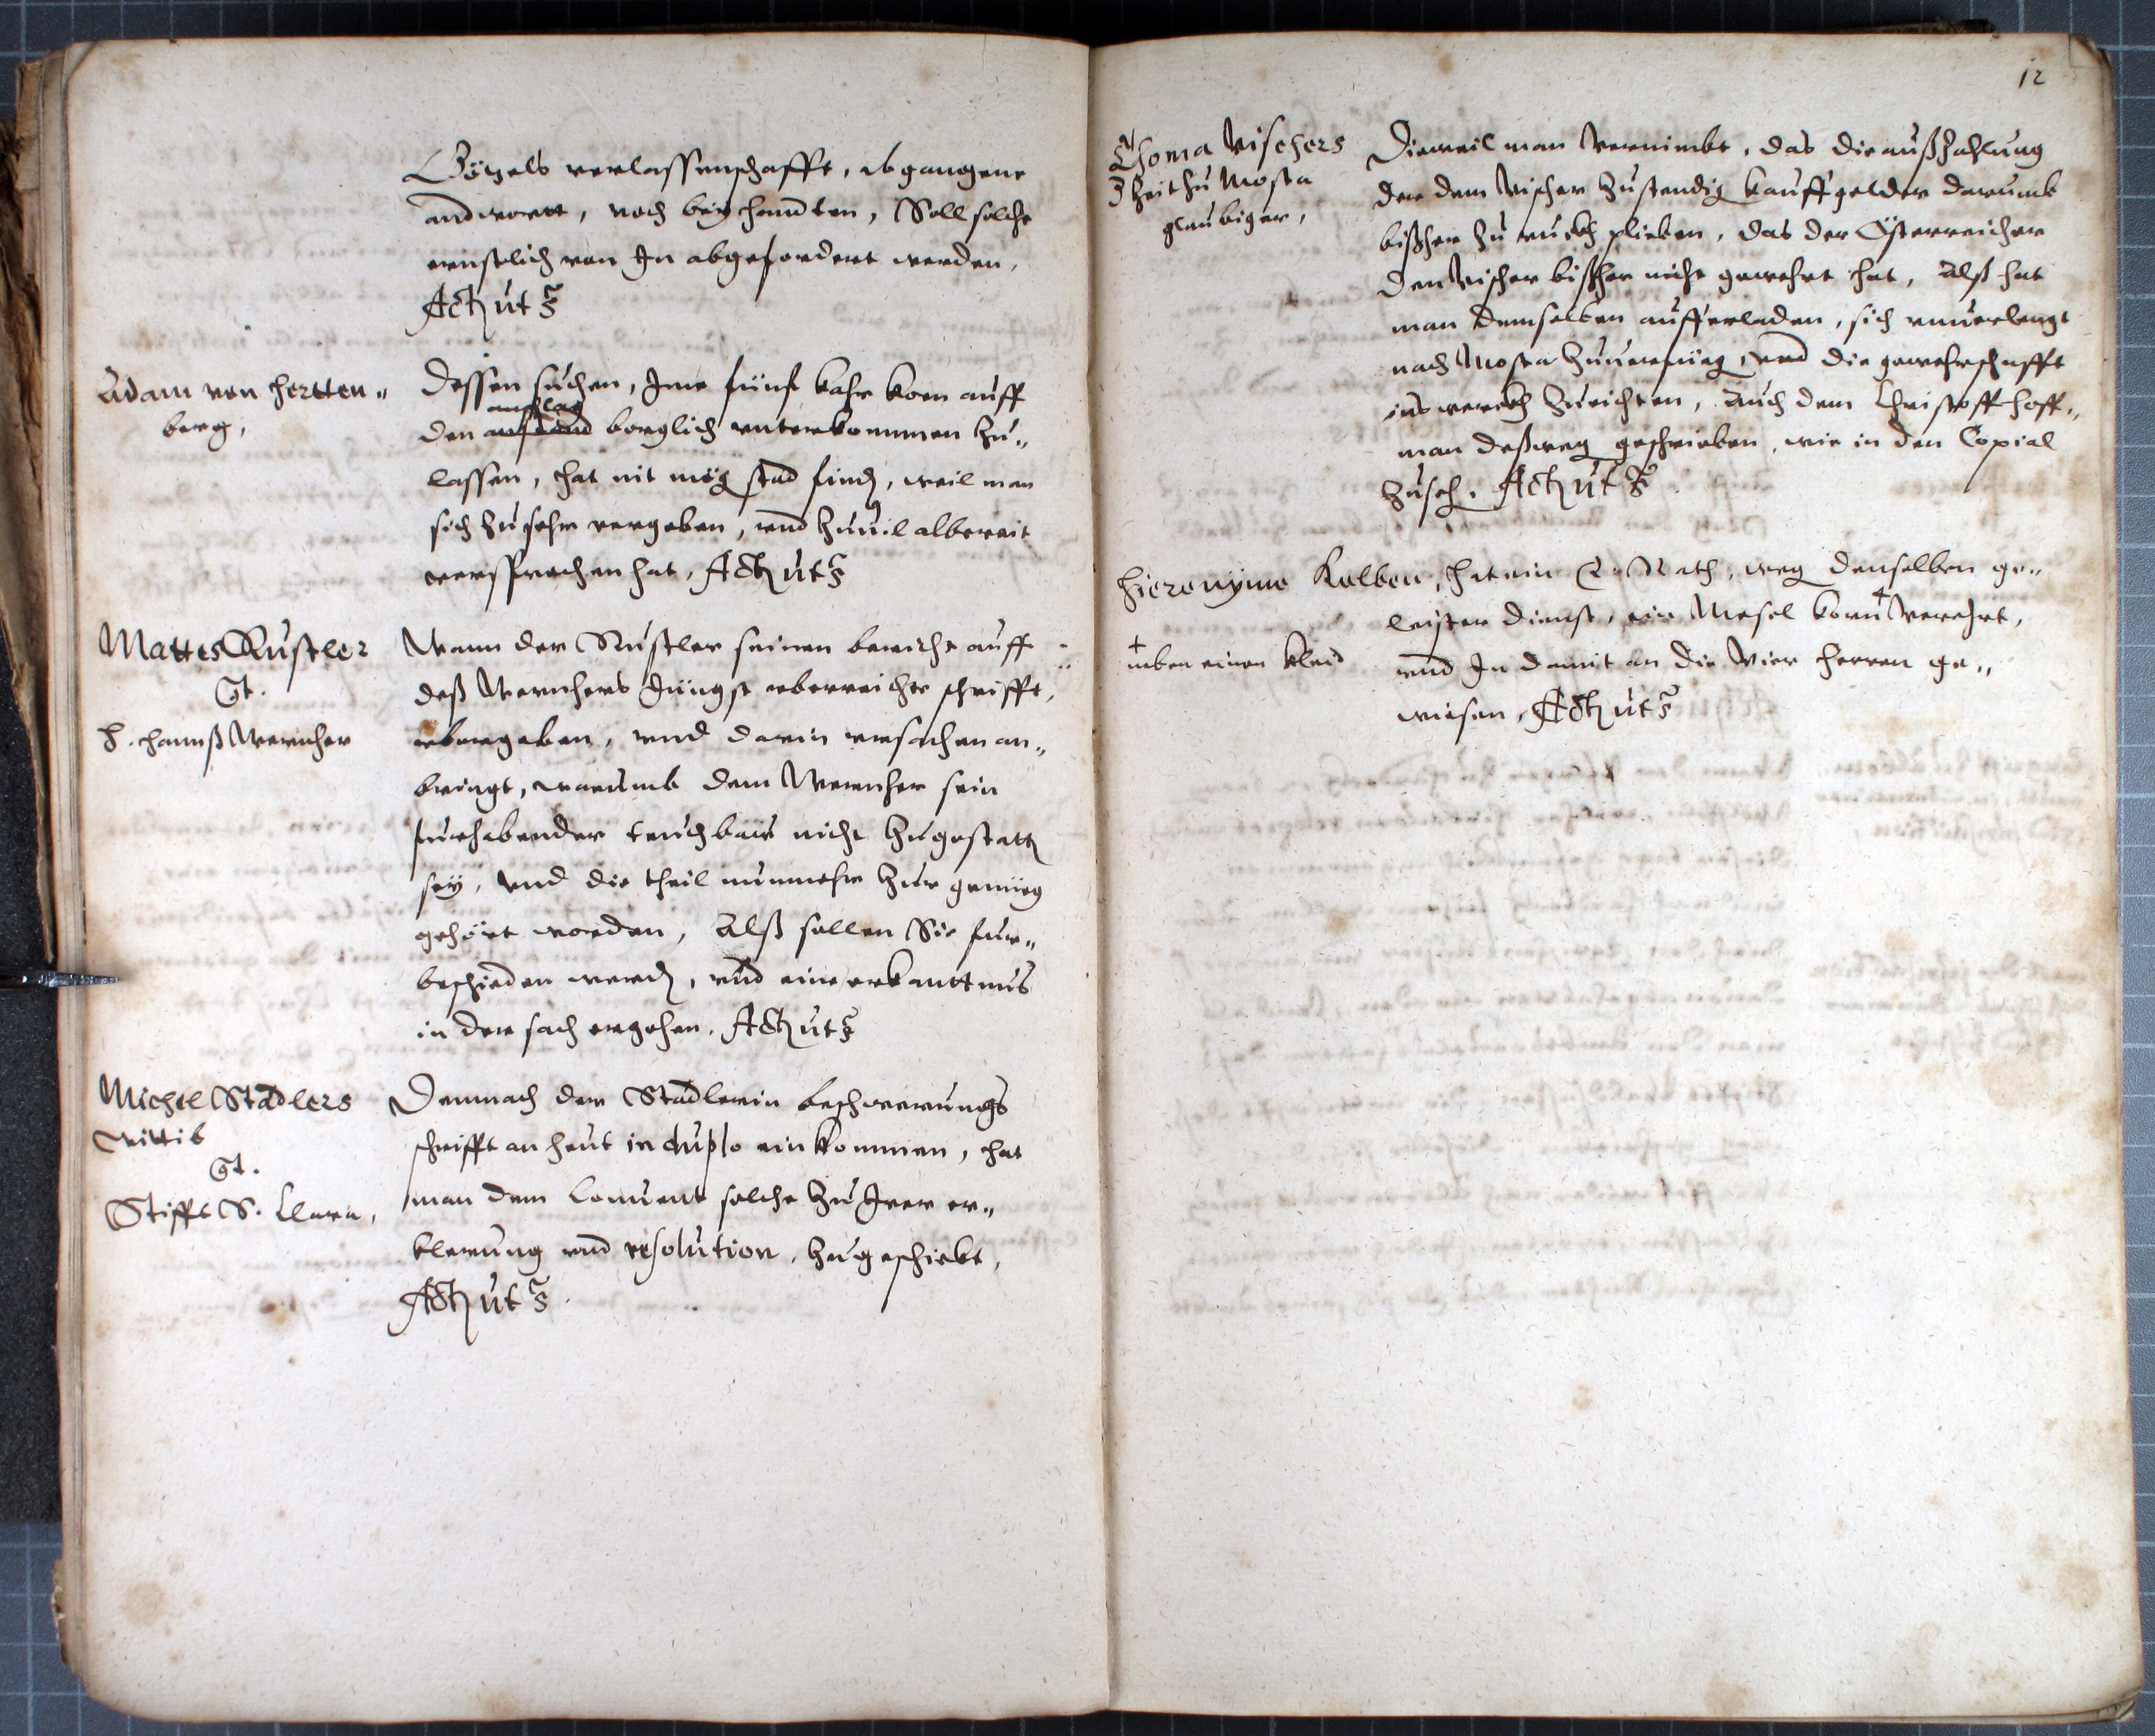 Götzels verlassenschafft, abgangene
andwortt, noch beyhandten, Soll solche
ernstlich von Jm abgefordert werden,
Actum ut s
Adam von Hertten„
berg,
Dessen suchen, Jme fünf kahr korn auff
anschlag
den anstand borglich unterkommen zu„
lassen, hat nit mög stad find, weil man
sich zusehr vergeben, und zuuil albereit
versprochen hat, Actum ut s
Mattes Rustler
Ct.
H. Hannß Wernher
Wann der Rustler seinen bericht auff
deß Wernhers Jüngst vberreichte schrifft,
vbergeben, und darin ursachen an„
bringt, warumb dem Wernher sein
furhabender teuchbau nicht zugestatt
sey, und die theil nunmehr zur genüg
gehört worden, Alß sollen Sie fur„
beschieden werd, und eine erkanttnus
in der sach ergehen. Actum ut s
Michel Stadlers
wittib
Ct.
Stifft S. Clara,
Demnach der Stadlerin beschwerungs
schrifft an heut in duplo einkommen, hat
man dem Conuent solche zu Jrer er„
klerung und resolution, zugeschickt,
Actum ut s
12
Thoma Vischers
zu Mosta
glaubiger,
Dieweil man vernimbt, das die außzahlung
der dem Vischer zustendig kauffgelder darumb
bißher zu ruckh plieben, das der Österreicher
den Vischer bißher nicht gewehrt hat, Alß hat
man demselben aufferladen, sich unuerlengt
nach Mosta zuuerfüeg, und die gewehrschafft
ins werckh zurichten, Auch dem Christoff Hoff„
man deßweg geschrieben, wie in dem Copial
zuseh. Actum ut s
Hieronÿmo Kolben, hat ein E. Rath, weg denselben ge„
leister dienst, ein Mesel korn + verehrt,
+
neben einem kleid
und Jn damit an die Vier herren ge„
wiesen, Actum ut s